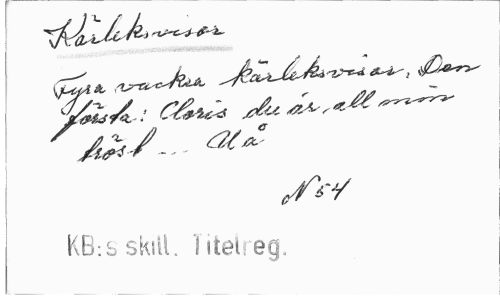 Kärleksvisor
Fyra vackra kärleksvisor. Den
första: Cloris du är all min
tröst ... U å
N 54
KB:s skill. Titelreg.